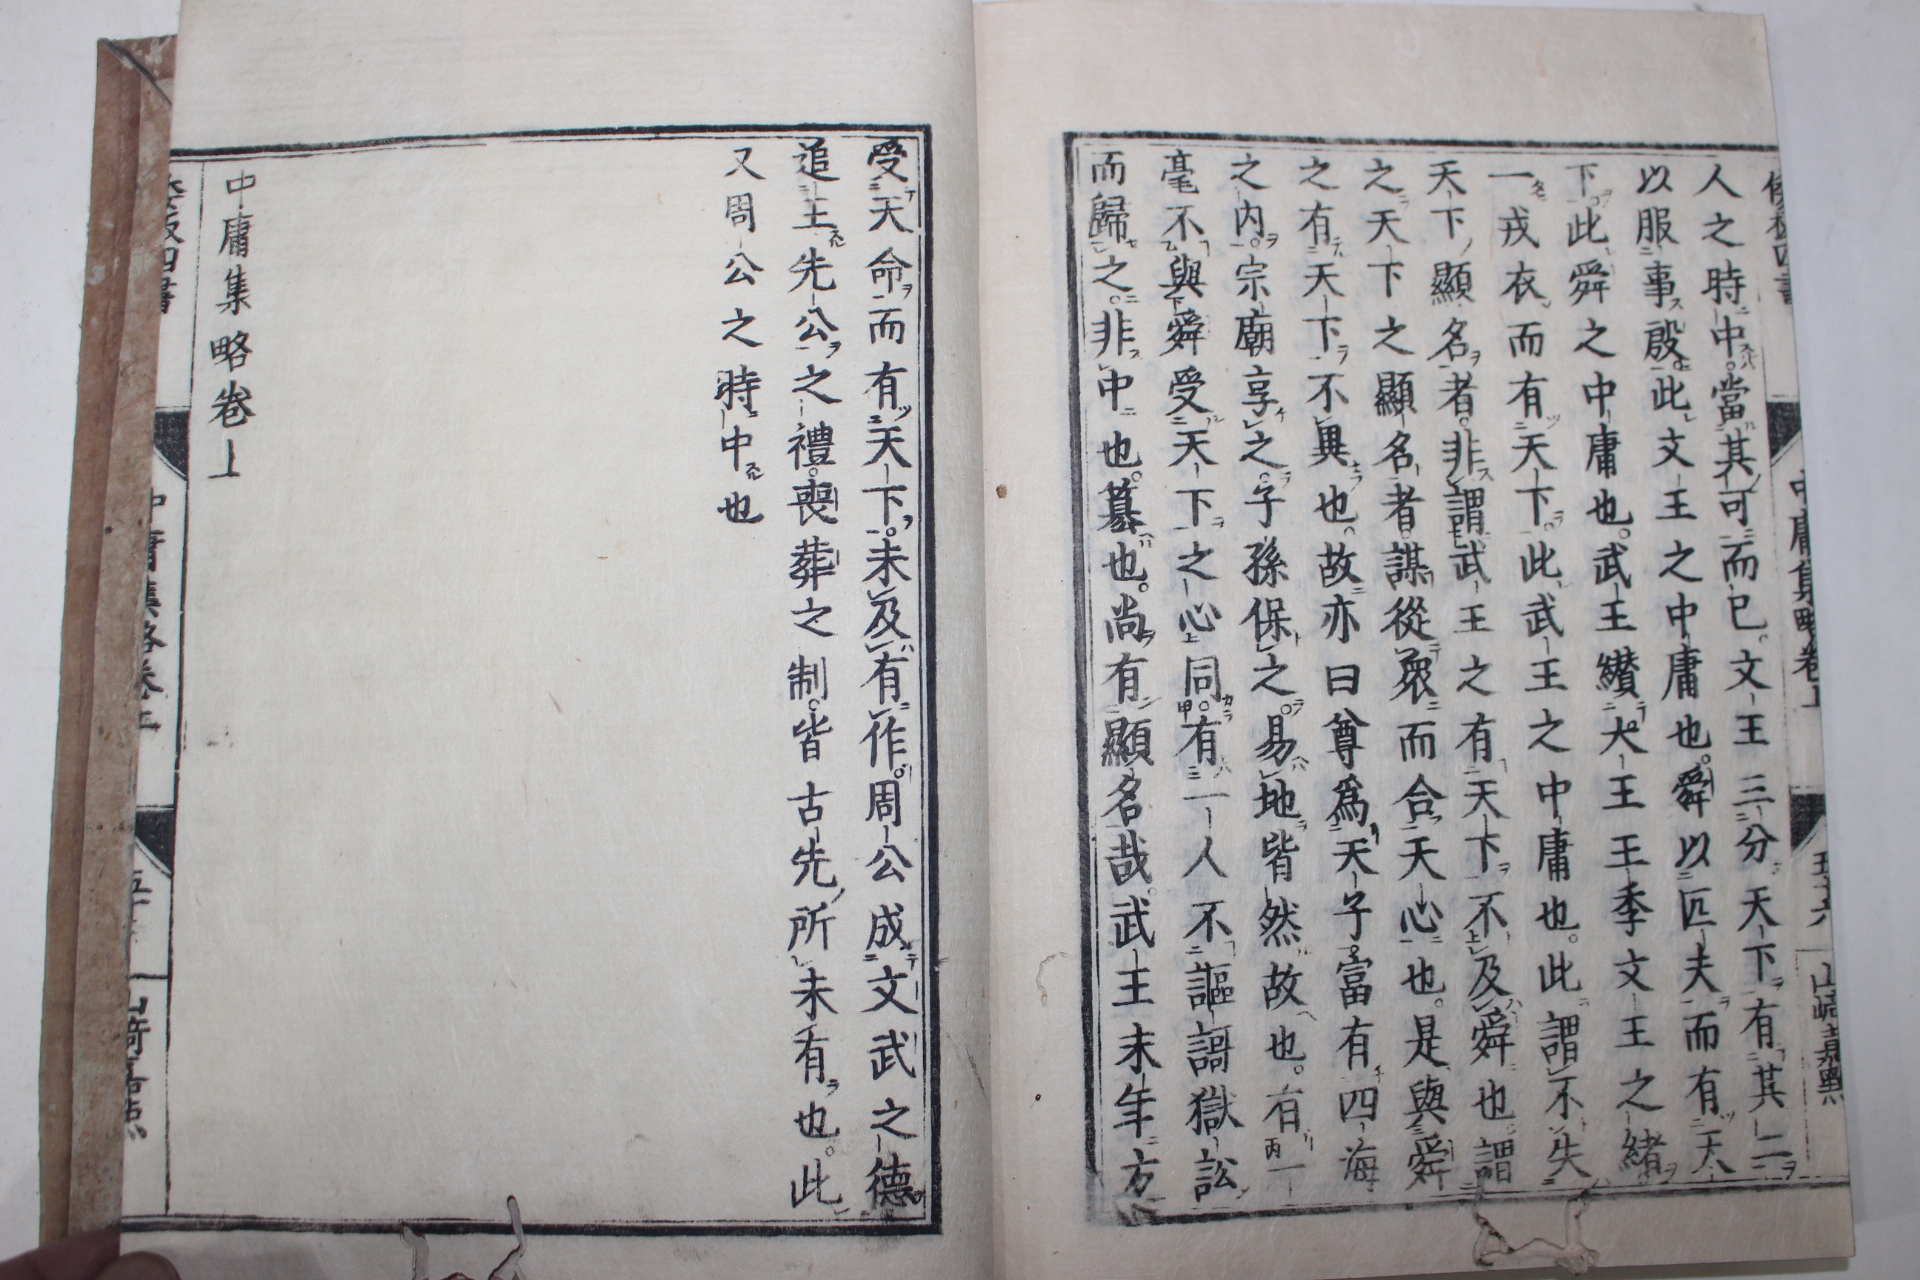 人之時中當其可而已。文王三分天下有其二
以服事殷此文王之中庸也。舜以匹夫而有天
下。此舜之中庸也。武王纘大王王季文王之緒
一戎衣而有天下。此武王之中庸也。此謂不失
天下顯名者。非謂武王之有天下不及舜也謂
之天下之顯名者。謀從衆而合天心也。是與舜
之有天下不異也。故亦曰尊爲天子。富有四海
之內。宗廟享之。子孫保之。易地皆然故也。有一
毫不與舜受天下之心同。有一人不謳謌獄訟
而歸之。非中也。簒也。尚有顯名哉。武王末年方
受天命而有天下。未及有作。周公成文武之德
追王先公之禮。喪葬之制。皆古先所未有也。此
又周公之時中也
中庸集略卷上
中庸集略卷上
山﨑嘉點